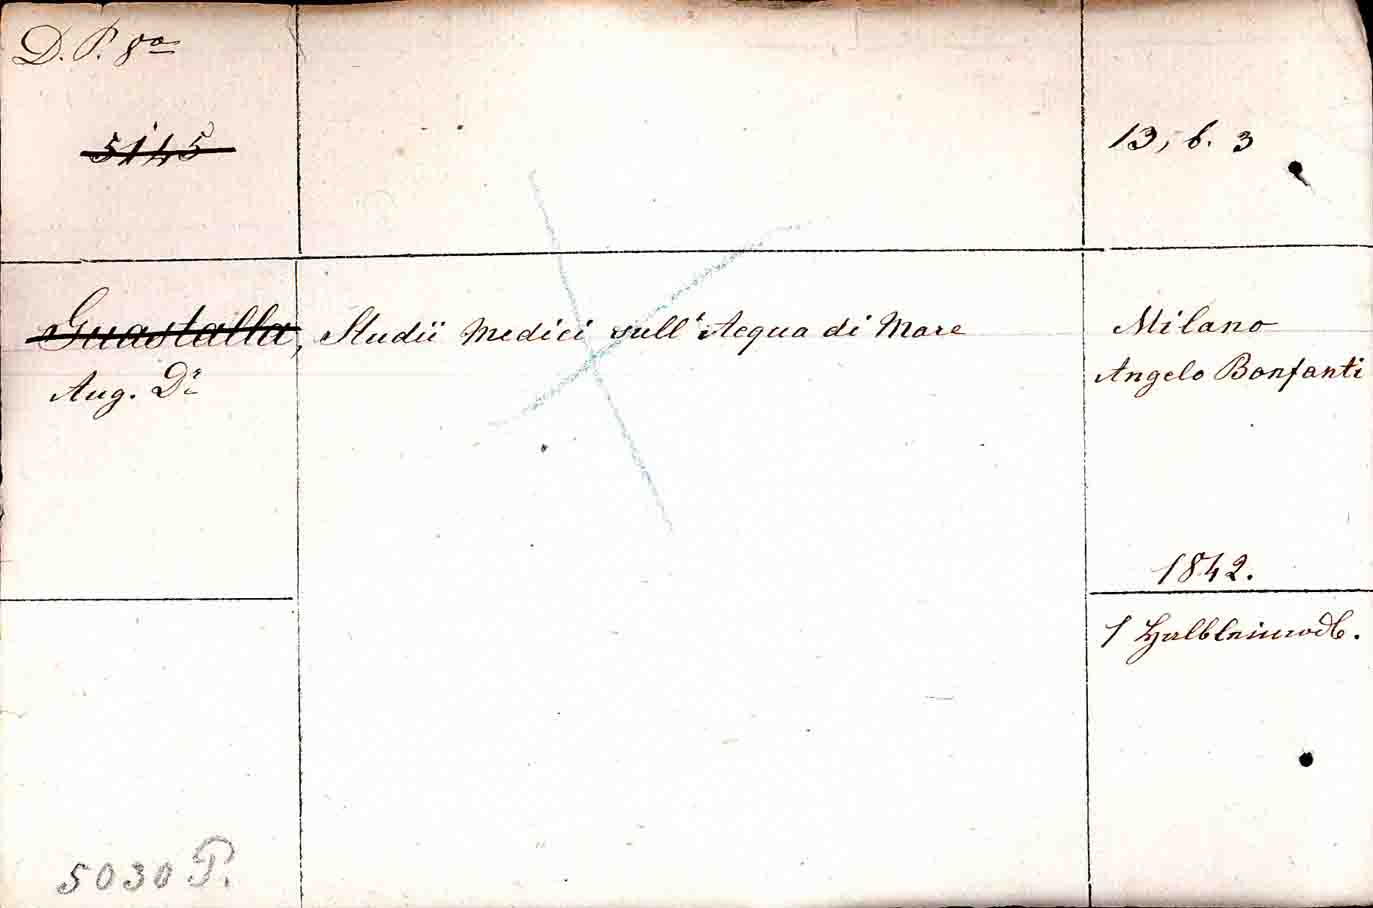 D. P. 8º
5145
13, b. 3
Guastalla,
Aug. Dr
Studii Medici sull' Acqua di Mare
Milano
Angelo Bonfanti
1842.
1 Halbleinwdb.
5030 P.